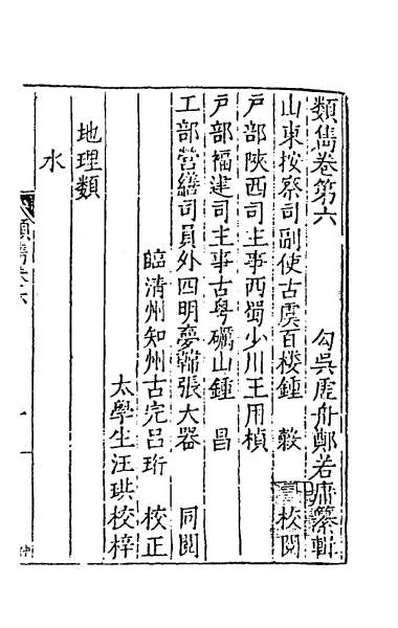 類雋卷第六
勾吳虛舟鄭若庸纂輯
山東按察司副使古虞百樓鍾 穀 校閱
戶部陝西司主事西蜀少川王用楨
戶部福建司主事古粵礪山鍾 昌
工部營繕司員外四明夢	張大器 同閱
臨清州知州古完呂珩 校正
太學生汪珙校梓
地理類
水
類雋卷六
一